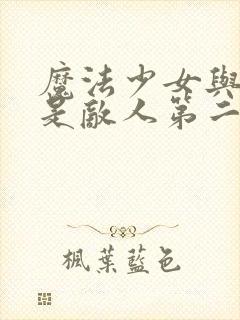 魔法少女與
是敵人第二
楓葉藍色